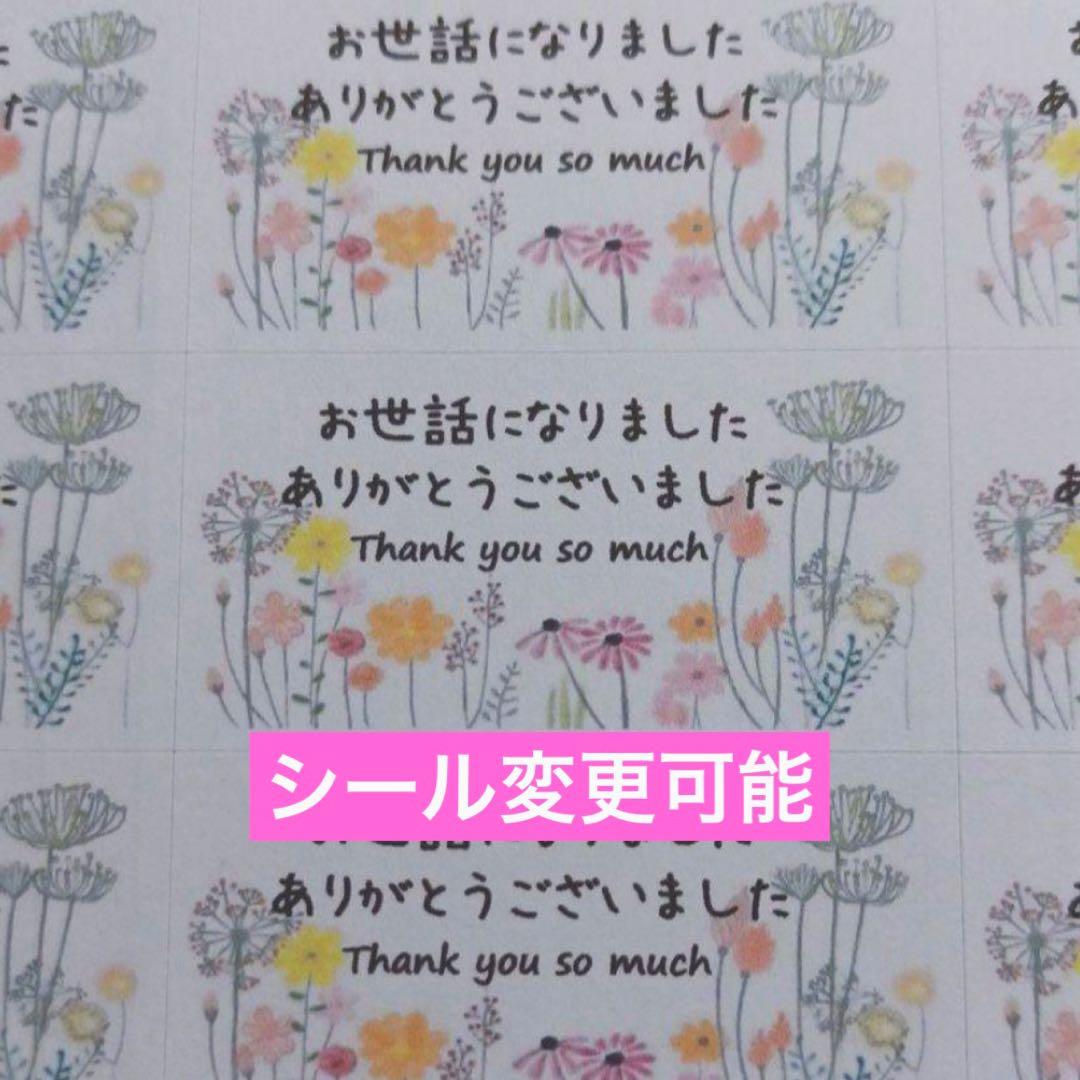 お世話になりました
ありがとうございました
Thank you so much
お世話になりました
ありがとうございました
Thank you so much
シール変更可能
お世話になりました
ありがとうございました
Thank you so much